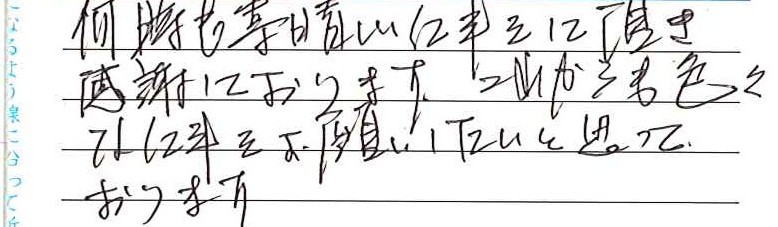 何時も素晴しい仕事をして頂き
感謝しております。これからも色々
な仕事をお願いしたいと思って
おります
なるよう線に沿って